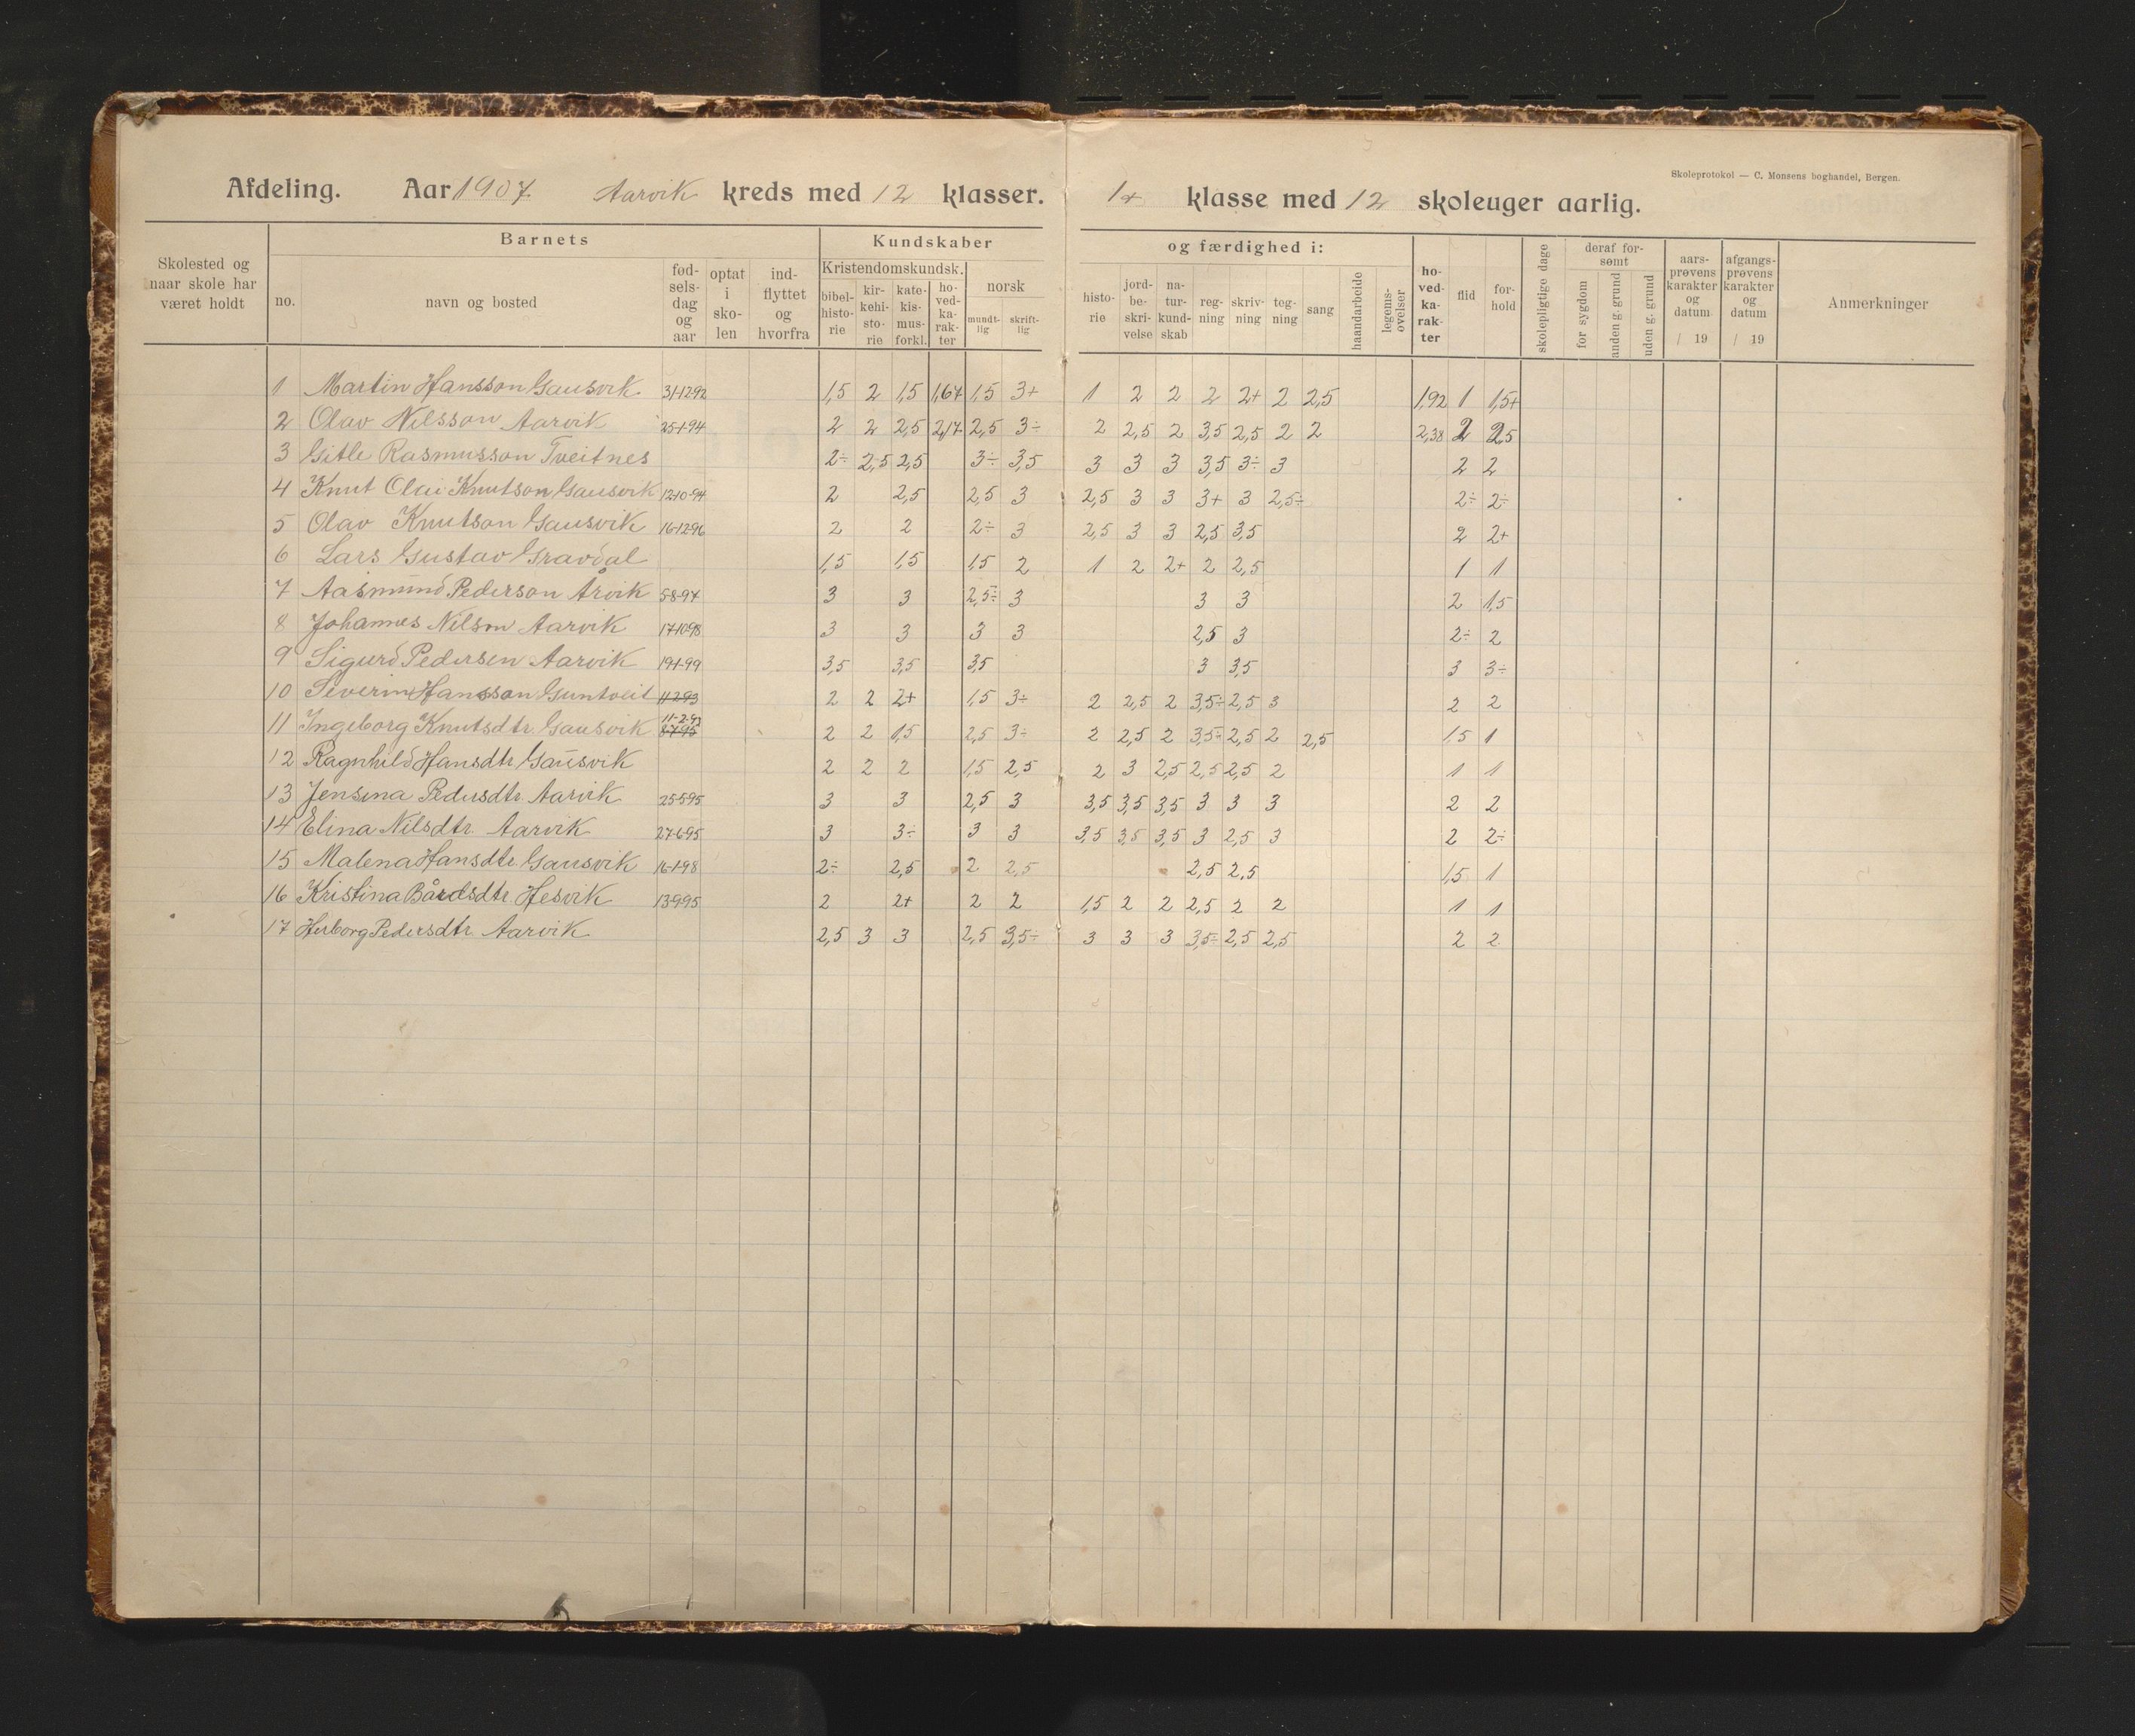 Skoleprotokol — C. Monsens boghandel, Bergen.
Afdeling. Aar 1907 Aarvik kreds med 12 klasser. 1+ klasse med 12 skoleuger aarlig.
Barnets Kundskaber og færdighed i:
Skolested og naar skole har været holdt
no.
navn og bosted
fød-sels-dag og aar
optat i sko-len
ind-flyttet og hvorfra
Kristendomskundsk.
bibel-histo-rie
kir-kehi-sto-rie
kate-kis-mus-forkl.
ho-ved-ka-rak-ter
norsk
mundt-lig
skrift-lig
histo-rie
jord-be-skri-velse
na-tur-kund-skab
reg-ning
skriv-ning
teg-ning
sang
haandarbeide
legems-øvelser
ho-ved-ka-rak-ter
flid
for-hold
skolepligtige dage
deraf for-sømt
for sygdom
anden g. grund
uden g. grund
aars-prøvens karakter og datum / 19
afgangs-prøvens karakter og datum / 19
Anmerkninger
1 Martin Hansson Gausvik 31-12-92 1,5 2 1,5 1,67 1,5 3+ 1 2 2 2 2+ 2 2,5 1,92 1 1,5+
2 Olav Nilsson Aarvik 25-1-94 2 2 2,5 2,17 2,5 3÷ 2 2,5 2 3,5 2,5 2 2 2,38 2 2,5
3 Gitle Rasmusson Tveitnes 2÷ 2,5 2,5 3÷ 3,5 3 3 3 3,5 3÷ 3 2 2
4 Knut Olai Knutson Gausvik 12-10-94 2 2,5 2,5 3 2,5 3 3 3+ 3 2,5÷ 2÷ 2÷
5 Olav Knutson Gausvik 16-12-96 2 2 2÷ 3 2,5 3 3 2,5 3,5 2 2+
6 Lars Gustav Gravdal 1,5 1,5 1,5 2 1 2 2+ 2 2,5 1 1
7 Aasmund Pederson Årvik 5-8-97 3 3 2,5÷ 3 3 3 2 1,5
8 Johannes Nilson Aarvik 17-10-98 3 3 3 3 2,5 3 2÷ 2
9 Sigurd Pedersen Aarvik 19-1-99 3,5 3,5 3,5 3 3,5 3 3÷
10 Severin Hansson Guntveit 11-2-93 2 2 2+ 1,5 3÷ 2 2,5 2 3,5÷ 2,5 3 2 2
11-2-93
11 Ingeborg Knutsdtr. Gausvik 8-7-95 2 2 1,5 2,5 3÷ 2 2,5 2 3,5÷ 2,5 2 2,5 1,5 1
12 Ragnhild Hansdtr Gausvik 2 2 2 1,5 2,5 2 3 2,5 2,5 2,5 2 1 1
13 Jensina Pedersdtr. Aarvik 25-5-95 3 3 2,5 3 3,5 3,5 3,5 3 3 3 2 2
14 Elina Nilsdtr. Aarvik 27-6-95 3 3÷ 3 3 3,5 3,5 3,5 3 2,5 3 2 2÷
15 Malena Hansdtr. Gausvik 16-1-98 2÷ 2,5 2 2,5 2,5 2,5 1,5 1
16 Kristina Bårdsdtr. Hesvik 13-9-95 2 2+ 2 2 1,5 2 2 2,5 2 2 1 1
17 Herborg Pedersdtr. Aarvik 2,5 3 3 2,5 3,5÷ 3 3 3 3,5÷ 2,5 2,5 2 2